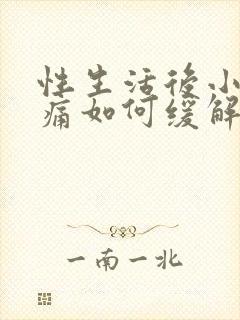 性生活後小
痛如何缓解
一南一北